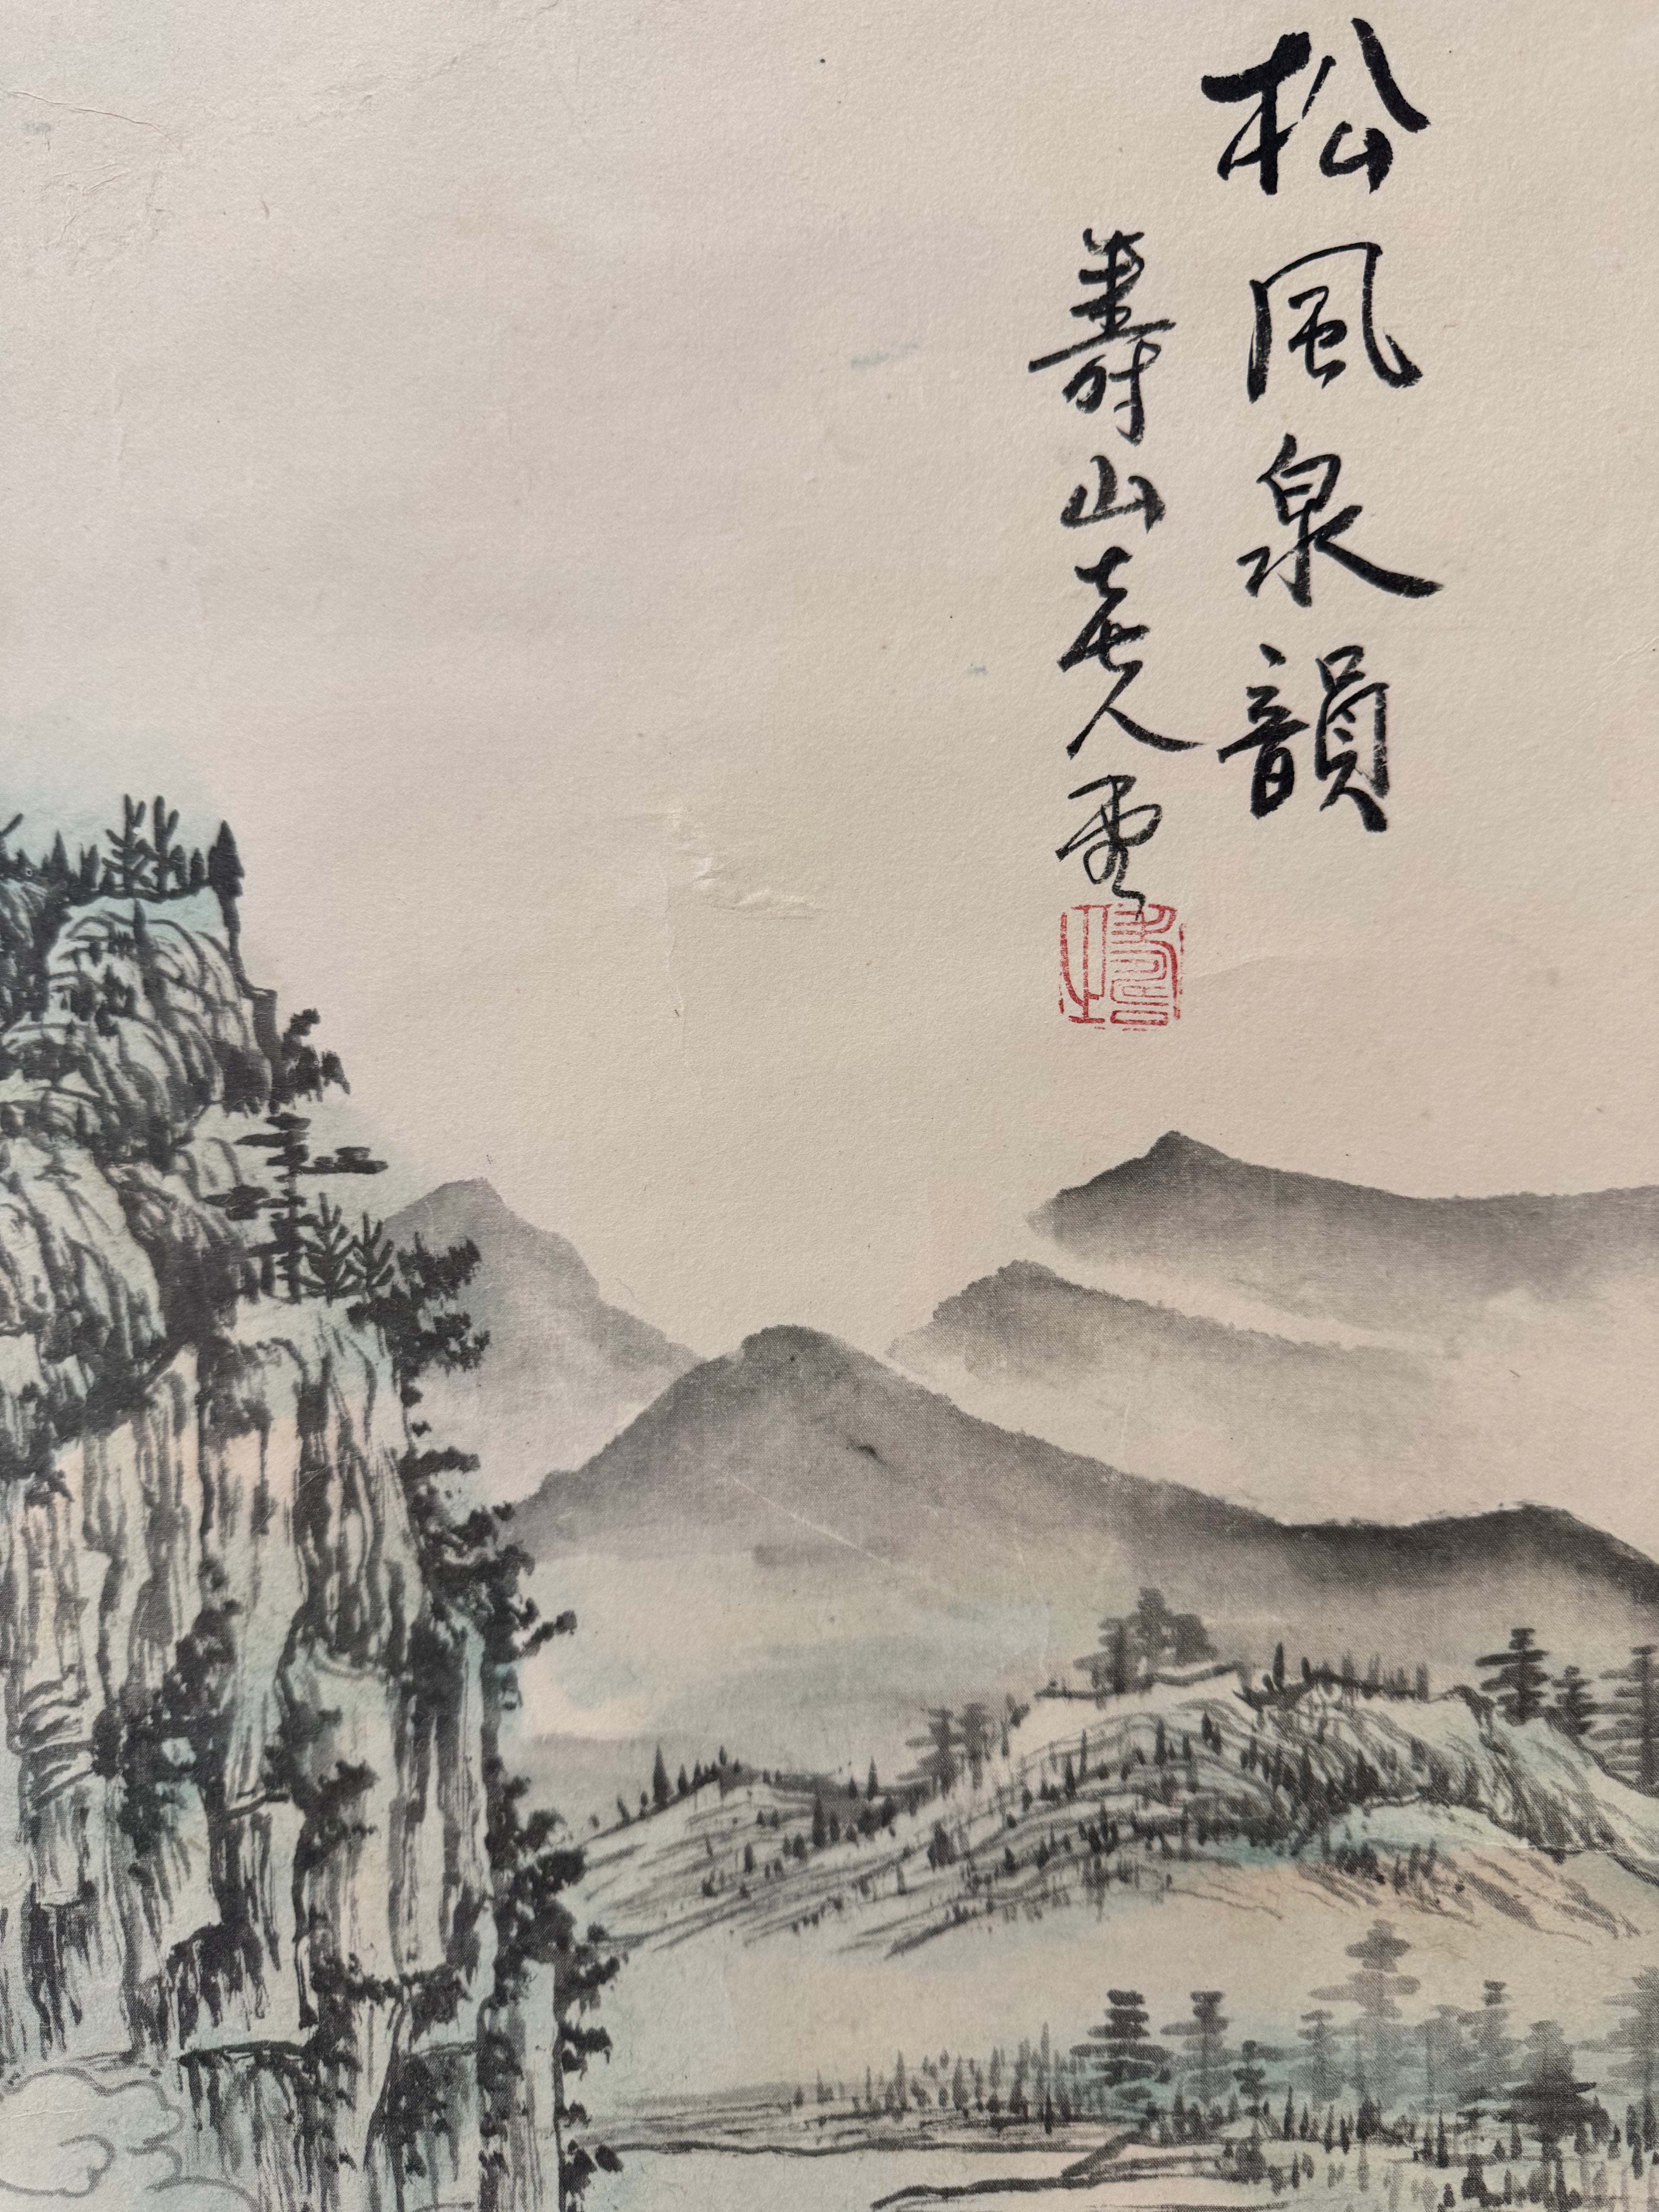 松風泉韻
壽山老人